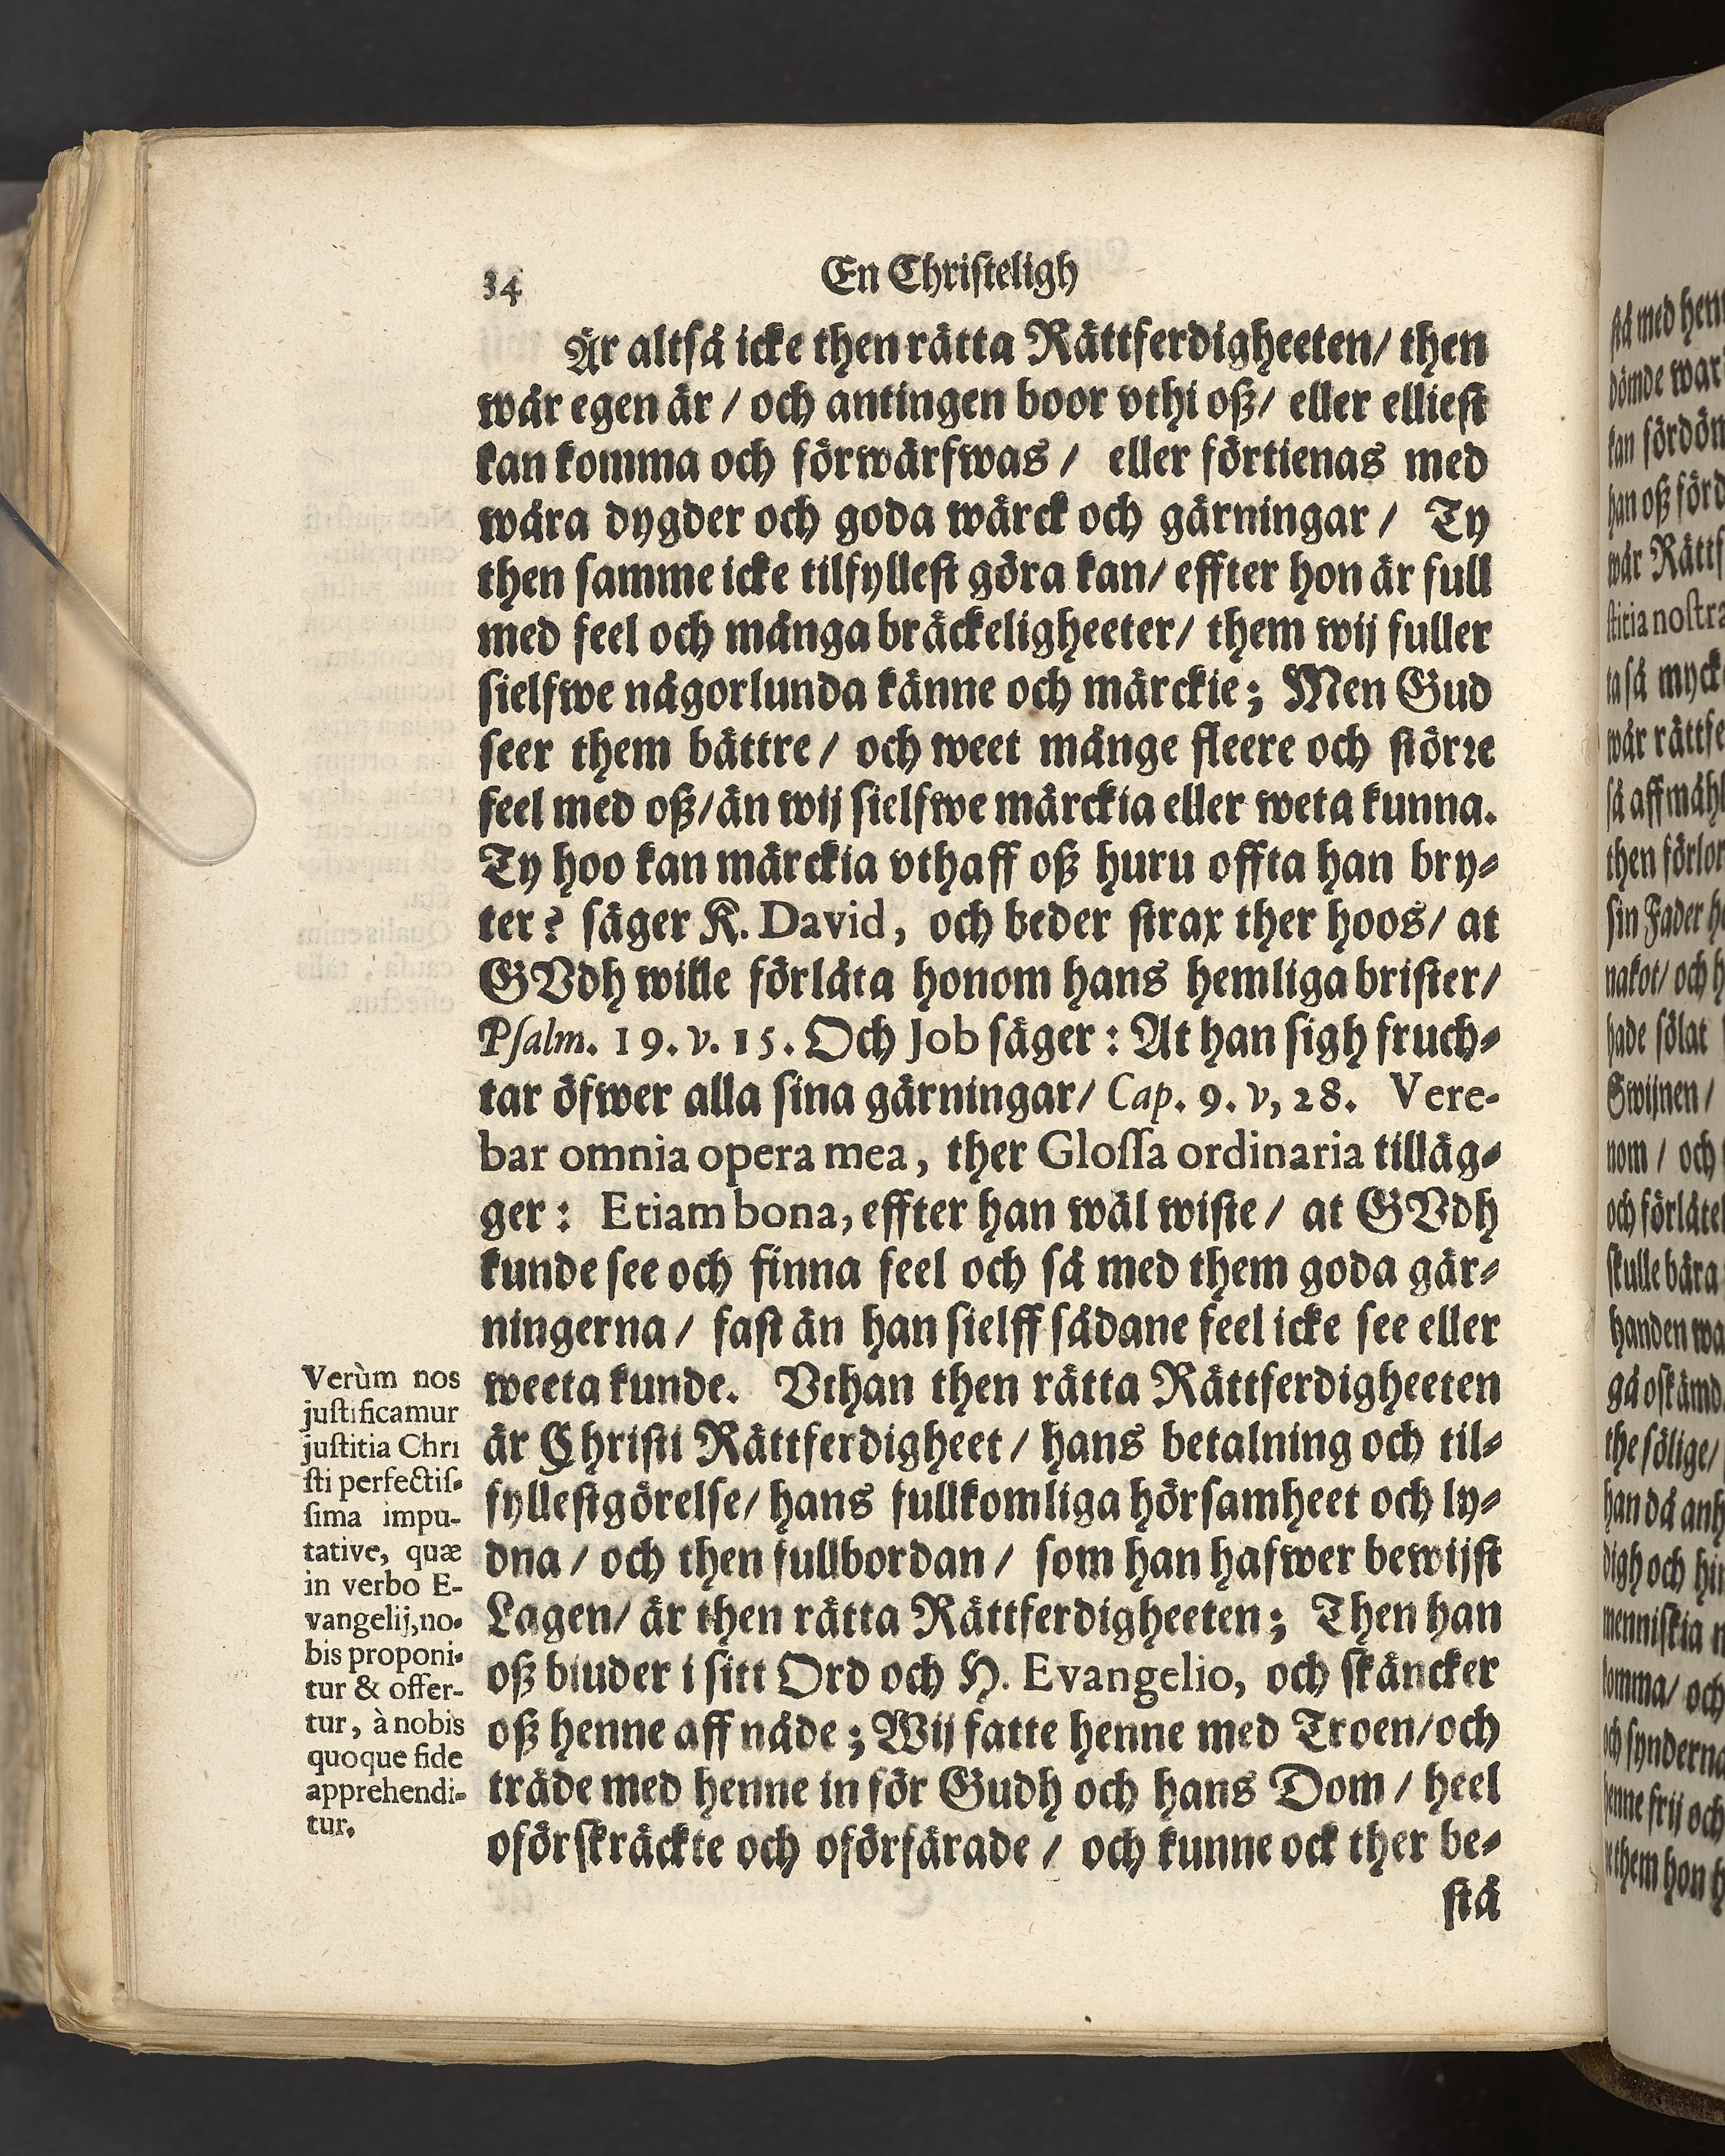 34
En Christeligh
Är altså icke then rätta Rättferdigheeten/ then
wår egen är / och antingen boor vthi oß/ eller elliest
kan komma och förwärfwas / eller förtienas med
wåra dygder och goda wärck och gärningar / Ty
then samme icke tilfyllest göra kan/ effter hon är full
med feel och många bräckeligheeter/ them wij fuller
sielfwe någorlunda känne och märckie; Men Gud
seer them bättre / och weet månge fleere och större
feel med oß/än wij sielfwe märckia eller weta kunna.
Ty hoo kan märckia vthaff oß huru offta han bry-
ter? säger K. David, och beder strax ther hoos/ at
GVdh wille förlåta honom hans hemliga brister/
Psalm. 19. v. 15. Och Job säger: At han sigh fruch-
tar öfwer alla sina gärningar/ Cap. 9. v, 28. Vere-
bar omnia opera mea, ther Glossa ordinaria tilläg-
ger: Etiam bona, effter han wäl wiste / at GVdh
kunde see och finna feel och så med them goda gär-
ningerna / fast än han sielff sådane feel icke see eller
weeta kunde. Vthan then rätta Rättferdigheeten
är Christi Rättferdigheet / hans betalning och til-
fyllestgörelse/ hans fullkomliga hörsamheet och ly-
dna / och then fullbordan / som han hafwer bewijst
Lagen/ är then rätta Rättferdigheeten; Then han
oß biuder i sitt Ord och H. Evangelio, och skäncker
oß henne aff nåde; Wij fatte henne med Troen/och
träde med henne in för Gudh och hans Dom / heel
oförskräckte och oförfärade / och kunne ock ther be-
stå
Verùm nos
justificamur
justitia Chri
sti perfectis-
sima impu-
tative, quæ
in verbo E-
vangelij,no-
bis proponi-
tur & offer-
tur, à nobis
quoque fide
apprehendi-
tur.